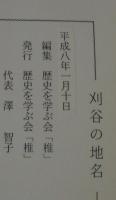 刈谷の地名
平成八年一月十日
編集 歴史を学ぶ会「椎」
発行 歴史を学ぶ会「椎」
代表 澤 智子